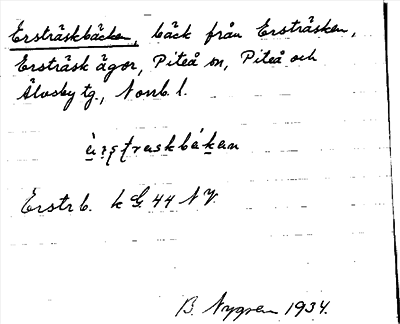 Ersträskbäcken, bäck från Ersträsken,
Ersträsk ägor, Piteå sn, Piteå och
Älvsby tg., Norrb. l.
Erstr b. k G. 44 N V.
B. Nygren 1934.